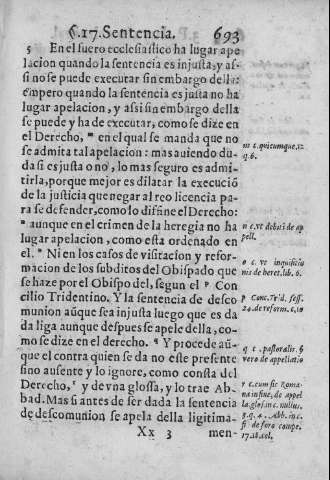 §.17. Sentencia. 693
5 En el fuero ecclesiastico ha lugar ape
lacion quando la sentencia es injusta, y as-
si no se puede executar sin embargo della:
empero quando la sentencia es justa no ha
lugar apelacion, y assi sin embargo della
se puede y ha de executar, como se dize en
el Derecho, m en el qual se manda que no
se admita tal apelacion: mas auiendo du-
da si es justa o no, lo mas seguro es admi-
tirla, porque mejor es dilatar la execució
de la justicia que negar al reo licencia pa-
ra se defender, como lo difine el Derecho:
n aunque en el crimen de la heregia no ha
lugar apelacion, como esta ordenado en
el. o Ni en los casos de visitacion y refor-
macion de los subditos del Obispado que
se haze por el Obispo del, segun el p Con-
cilio Tridentino. Y la sentencia de desco
munion aūque sea injusta luego que es da
da liga aunque despues se apele della, co-
mo se dize en el derecho. q Y procede aū-
que el contra quien se da no este presente
sino ausente y lo ignore, como consta del
Derecho, r y de vna glossa, y lo trae Ab-
bad. Mas si antes de ser dada la sentencia
de descomunion se apela della ligitima-
Xx 3 men-
m c. quicumque. 12
q. 6.
n c. vt debiti de ap
pell.
o c. vt inquisitio
nis de heret. lib. 6.
p Conc. Tri'd. sess.
24. de reform. c. 10
q c. pastoralis. §
vero de appellatio
r c. cum sit Roma-
na in fine, de appel
la. glos. in c. nullus.
9. q. 4. Abb. in c.
si de foro compe.
17. 18. col.